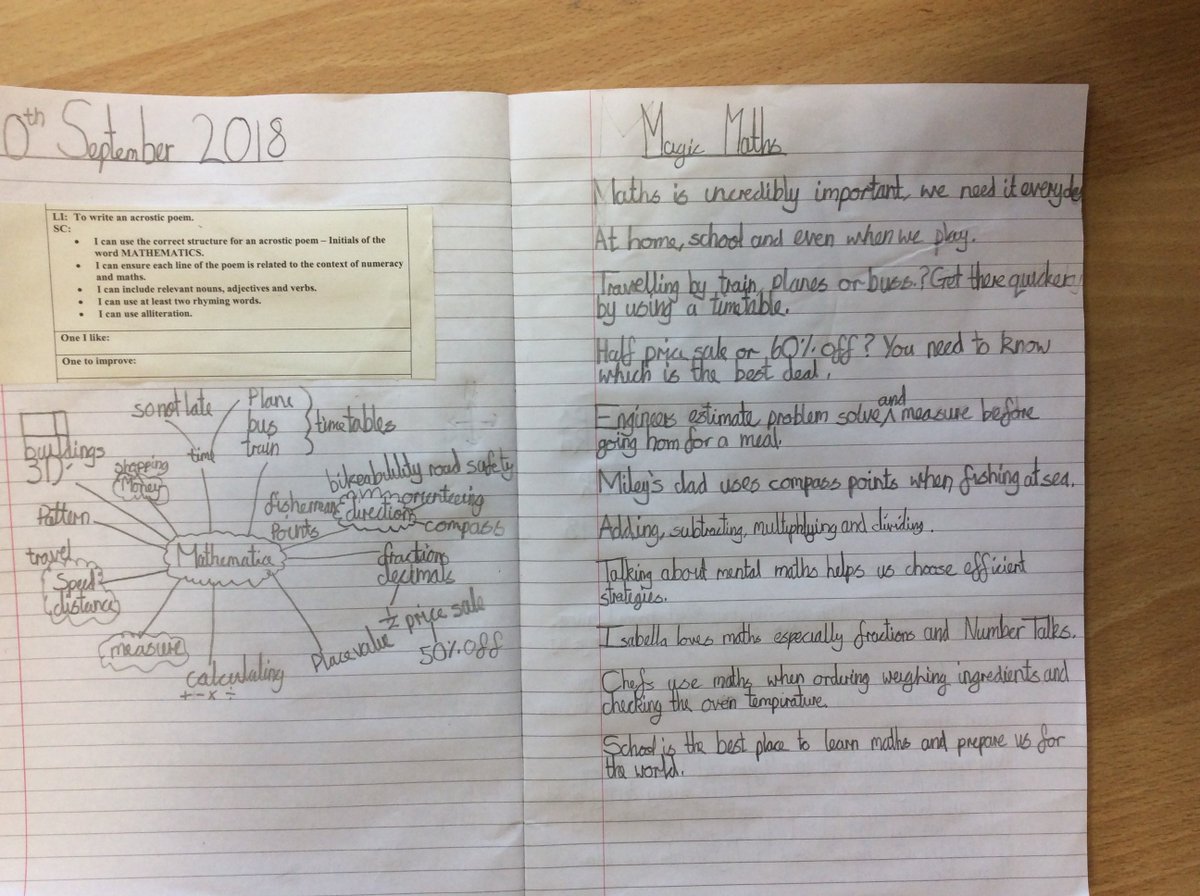 0th September 2018
LI: To write an acrostic poem.
SC:
• I can use the correct structure for an acrostic poem – Initials of the
word MATHEMATICS.
• I can ensure each line of the poem is related to the context of numeracy
and maths.
• I can include relevant nouns, adjectives and verbs.
• I can use at least two rhyming words.
• I can use alliteration.
One I like:
One to improve:
so not late
Plane
bus
train
timetables
time
buildings
3D
shopping
Money
Pattern
travel
Speed
distance
measure
calculating
+ - x ÷
Place value
Mathematics
bikeability road safety
orienteering
fisherman
direction
compass
Points
fraction
decimals
½ price sale
50% off
Magic Maths
Maths is incredibly important, we need it everyday
At home, school and even when we play.
Travelling by train, planes or buss.? Get there quicker
by using a timetable.
Half price sale or 60% off? You need to know
which is the best deal.
Engineers estimate, problem solve and measure before
going hom for a meal.
Miley's dad uses compass points when fishing at sea.
Adding, subtracting, multiphlying and dividing.
Talking about mental maths helps us choose efficient
strategies.
Isabella loves maths especially fractions and Number Talks.
Chefs use maths when ordering weighing ingredients and
checking the oven tempirature.
School is the best place to learn maths and prepare us for
the world.